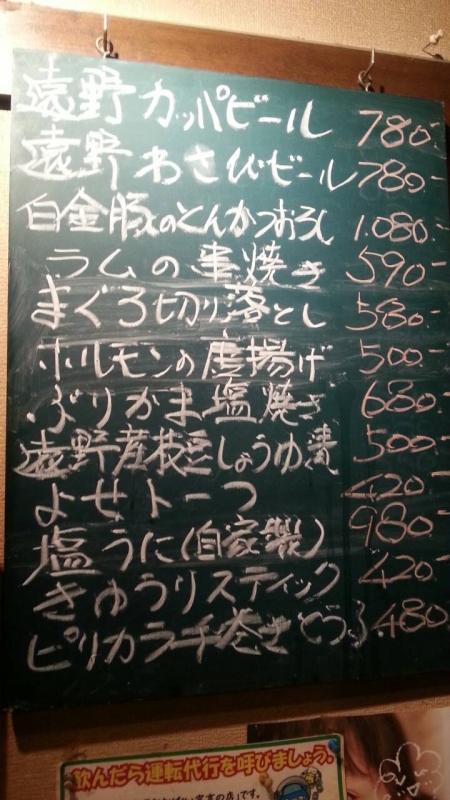 遠野カッパビール 780.-
遠野わさびビール 780.-
白金豚のとんかつおろし 1.080.-
ラムの串焼き 590.-
まぐろ切り落とし 580.-
ホルモンの唐揚げ 500.-
ぶりかま塩焼き 680.-
遠野産枝豆しょうゆ漬 500.-
よせトーフ 420.-
塩うに(自家製) 980.-
きゅうりスティック 420.-
ピリカラ千巻きどうふ 480.-
飲んだら運転代行を呼びましょう。
の店」です。